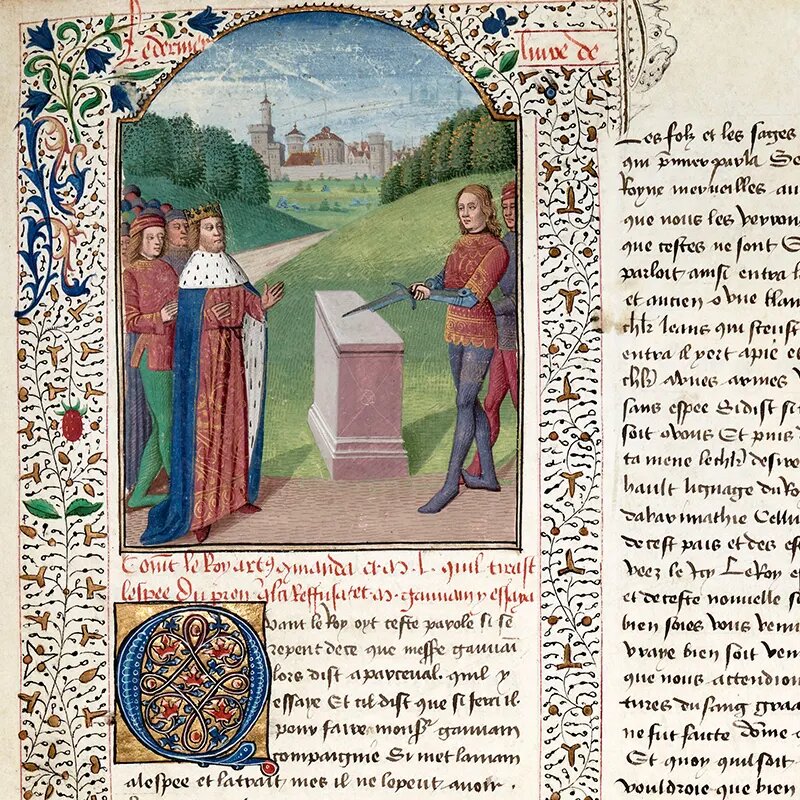 Le dernier
livre de
Com̃t le Roy artꝯ cõmanda et a M. L. quil tirast
lespee du peron q̃l a Reffusa et a M. gauuain y essaya
Quant le Roy oyt ceste parole si se
repent dece que messe gauuaĩ
lors dist a parceval. quil y
essaye Et cil dist que si feri il.
pour faire monsr̃ gauuain
compaignie Si met la main
alespee et la trait mes il ne lopeut auoir.
Les folz et les saiges
qui primier parla Se
Royne merueilles au
que nous les verron
que cestes ne sont
parloit ainsi entra
et ancien vestue blan
chlr̃ leans qui sceust
entra il vert a pie et
chlr̃ armes
sans espee Si dist si
soit o vous Et puis
ta mene le chlr̃ desire
hault lignage du Ro
dabarimathie Cellui
de cest pais et des es
veez le Icy Le Roy e
et de ceste nouuelle
bien soies vous venu
vraye bien soit ven
que nous attendion
tures du sang graa
ne fut faicte
Et quoy quil soit
vouldroie que bien